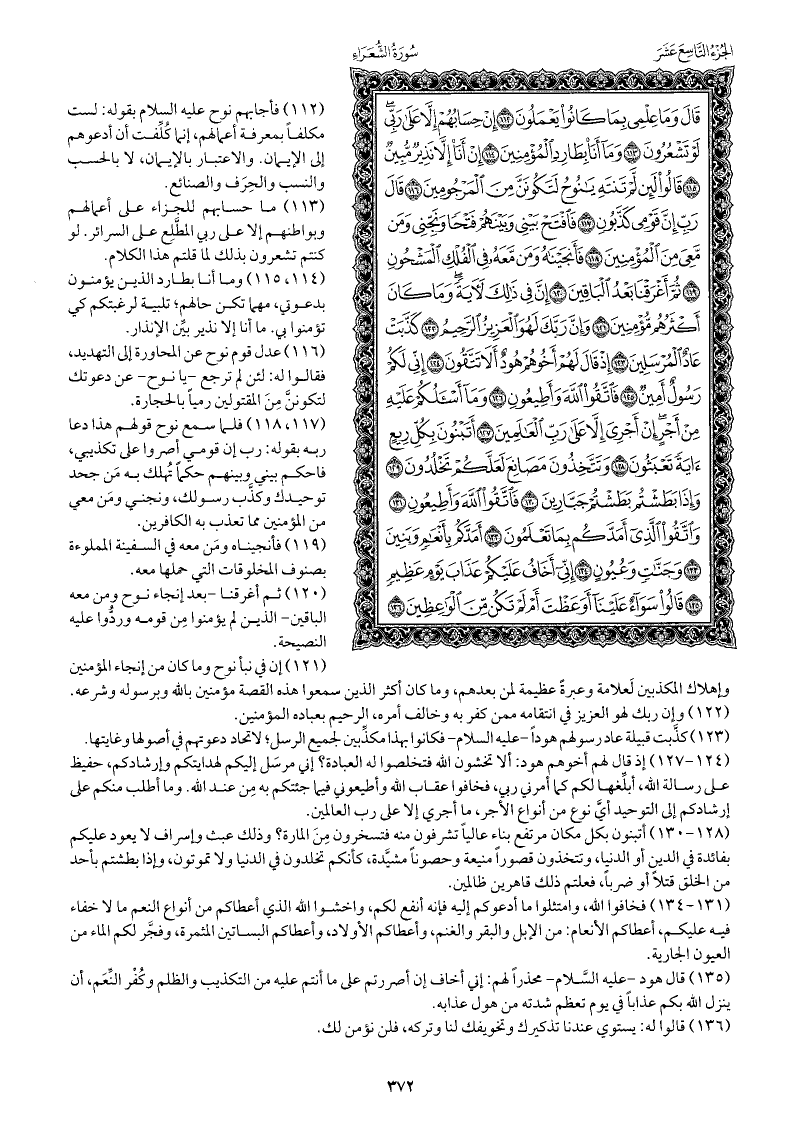 الجزء التاسع عشر
سورة الشعراء
قَالَ وَمَا عِلْمِى بِمَا كَانُوا۟ يَعْمَلُونَ ١١٢ إِنْ حِسَابُهُمْ إِلَّا عَلَىٰ رَبِّى
لَوْ تَشْعُرُونَ ١١٣ وَمَآ أَنَا۠ بِطَارِدِ ٱلْمُؤْمِنِينَ ١١٤ إِنْ أَنَا۠ إِلَّا نَذِيرٌ مُّبِينٌ
١١٥ قَالُوا۟ لَئِن لَّمْ تَنتَهِ يَٰنُوحُ لَتَكُونَنَّ مِنَ ٱلْمَرْجُومِينَ ١١٦ قَالَ
رَبِّ إِنَّ قَوْمِى كَذَّبُونِ ١١٧ فَٱفْتَحْ بَيْنِى وَبَيْنَهُمْ فَتْحًا وَنَجِّنِى وَمَن
مَّعِىَ مِنَ ٱلْمُؤْمِنِينَ ١١٨ فَأَنجَيْنَٰهُ وَمَن مَّعَهُۥ فِى ٱلْفُلْكِ ٱلْمَشْحُونِ
١١٩ ثُمَّ أَغْرَقْنَا بَعْدُ ٱلْبَاقِينَ ١٢٠ إِنَّ فِى ذَٰلِكَ لَءَايَةً وَمَا كَانَ
أَكْثَرُهُم مُّؤْمِنِينَ ١٢١ وَإِنَّ رَبَّكَ لَهُوَ ٱلْعَزِيزُ ٱلرَّحِيمُ ١٢٢ كَذَّبَتْ
عَادٌ ٱلْمُرْسَلِينَ ١٢٣ إِذْ قَالَ لَهُمْ أَخُوهُمْ هُودٌ أَلَا تَتَّقُونَ ١٢٤ إِنِّى لَكُمْ
رَسُولٌ أَمِينٌ ١٢٥ فَٱتَّقُوا۟ ٱللَّهَ وَأَطِيعُونِ ١٢٦ وَمَآ أَسْـَٔلُكُمْ عَلَيْهِ
مِنْ أَجْرٍ إِنْ أَجْرِىَ إِلَّا عَلَىٰ رَبِّ ٱلْعَٰلَمِينَ ١٢٧ أَتَبْنُونَ بِكُلِّ رِيعٍ
ءَايَةً تَعْبَثُونَ ١٢٨ وَتَتَّخِذُونَ مَصَانِعَ لَعَلَّكُمْ تَخْلُدُونَ ١٢٩
وَإِذَا بَطَشْتُم بَطَشْتُمْ جَبَّارِينَ ١٣٠ فَٱتَّقُوا۟ ٱللَّهَ وَأَطِيعُونِ ١٣١
وَٱتَّقُوا۟ ٱلَّذِىٓ أَمَدَّكُم بِمَا تَعْلَمُونَ ١٣٢ أَمَدَّكُم بِأَنْعَٰمٍ وَبَنِينَ
١٣٣ وَجَنَّٰتٍ وَعُيُونٍ ١٣٤ إِنِّىٓ أَخَافُ عَلَيْكُمْ عَذَابَ يَوْمٍ عَظِيمٍ
١٣٥ قَالُوا۟ سَوَآءٌ عَلَيْنَآ أَوَعَظْتَ أَمْ لَمْ تَكُن مِّنَ ٱلْوَٰعِظِينَ ١٣٦
(١١٢) فأجابهم نوح عليه السلام بقوله: لست
مكلفاً بمعرفة أعمالهم، إنما كُلِّفت أن أدعوهم
إلى الإيمان. والاعتبار بالإيمان، لا بالحسب
والنسب والحِرَف والصنائع.
(١١٣) ما حسابهم للجزاء على أعمالهم
وبواطنهم إلا على ربي المطَّلِع على السرائر. لو
كنتم تشعرون بذلك لما قلتم هذا الكلام.
(١١٤، ١١٥) وما أنا بطارد الذين يؤمنون
بدعوتي، مهما تكن حالهم؛ تلبية لرغبتكم كي
تؤمنوا بي. ما أنا إلا نذير بيِّن الإنذار.
(١١٦) عدل قوم نوح عن المحاورة إلى التهديد،
فقالوا له: لئن لم ترجع -يا نوح- عن دعوتك
لتكوننَّ مِنَ المقتولين رمياً بالحجارة.
(١١٧، ١١٨) فلما سمع نوح قولهم هذا دعا
ربه بقوله: رب إن قومي أصروا على تكذيبي،
فاحكم بيني وبينهم حكماً تُهلك به مَن جحد
توحيدك وكذَّب رسولك، ونجني ومَن معي
من المؤمنين مما تعذب به الكافرين.
(١١٩) فأنجيناه ومَن معه في السفينة المملوءة
بصنوف المخلوقات التي حملها معه.
(١٢٠) ثم أغرقنا -بعد إنجاء نوح ومن معه
الباقين- الذين لم يؤمنوا مِن قومه وردُّوا عليه
النصيحة.
(١٢١) إن في نبأ نوح وما كان من إنجاء المؤمنين
وإهلاك المكذبين لَعلامة وعبرةً عظيمة لمن بعدهم، وما كان أكثر الذين سمعوا هذه القصة مؤمنين بالله وبرسوله وشرعه.
(١٢٢) وإن ربك لهو العزيز في انتقامه ممن كفر به وخالف أمره، الرحيم بعباده المؤمنين.
(١٢٣) كذَّبت قبيلة عاد رسولهم هوداً -عليه السلام- فكانوا بهذا مكذِّبين لجميع الرسل؛ لاتحاد دعوتهم في أصولها وغايتها.
(١٢٤-١٢٧) إذ قال لهم أخوهم هود: ألا تخشون الله فتخلصوا له العبادة؟ إني مرسَل إليكم لهدايتكم وإرشادكم، حفيظ
على رسالة الله، أبلِّغها لكم كما أمرني ربي، فخافوا عقاب الله وأطيعوني فيما جئتكم به مِن عند الله. وما أطلب منكم على
إرشادكم إلى التوحيد أيَّ نوع من أنواع الأجر، ما أجري إلا على رب العالمين.
(١٢٨-١٣٠) أتبنون بكل مكان مرتفع بناء عالياً تشرفون منه فتسخرون مِنَ المارة؟ وذلك عبث وإسراف لا يعود عليكم
بفائدة في الدين أو الدنيا، وتتخذون قصوراً منيعة وحصوناً مشيَّدة، كأنكم تخلدون في الدنيا ولا تموتون، وإذا بطشتم بأحد
من الخلق قتلاً أو ضرباً، فعلتم ذلك قاهرين ظالمين.
(١٣١-١٣٤) فخافوا الله، وامتثلوا ما أدعوكم إليه فإنه أنفع لكم، واخشوا الله الذي أعطاكم من أنواع النعم ما لا خفاء
فيه عليكم، أعطاكم الأنعام: من الإبل والبقر والغنم، وأعطاكم الأولاد، وأعطاكم البساتين المثمرة، وفجَّر لكم الماء من
العيون الجارية.
(١٣٥) قال هود -عليه السَّلام- محذراً لهم: إني أخاف إن أصررتم على ما أنتم عليه من التكذيب والظلم وكُفْر النِّعَم، أن
ينزل الله بكم عذاباً في يوم تعظم شدته من هول عذابه.
(١٣٦) قالوا له: يستوي عندنا تذكيرك وتخويفك لنا وتركه، فلن نؤمن لك.
٣٧٢